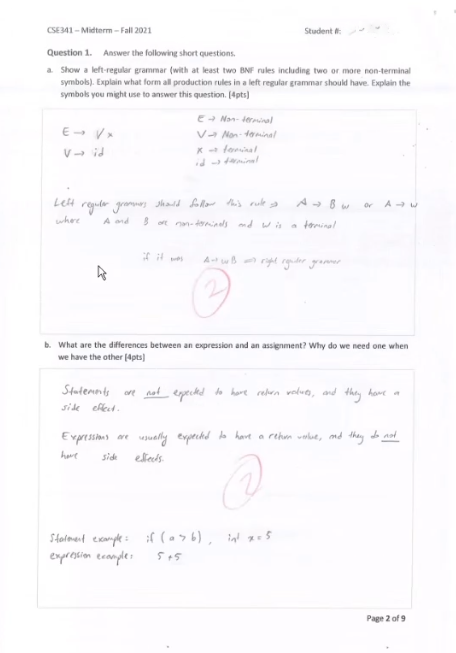 CSE341 – Midterm – Fall 2021 Student #:
Question 1. Answer the following short questions.
a. Show a left-regular grammar (with at least two BNF rules including two or more non-terminal
symbols). Explain what form all production rules in a left regular grammar should have. Explain the
symbols you might use to answer this question. [4pts]
E → Non-terminal
E → Vx V → Non-terminal
V → id x → terminal
id → terminal
Left regular grammars should follow this rule ⇒ A → B w or A → w
where A and B are non-terminals and w is a terminal
if it was A → wB was right regular grammar
2
b. What are the differences between an expression and an assignment? Why do we need one when
we have the other [4pts]
Statements are not expected to have return values, and they have a
side effect.
Expressions are usually expected to have a return value, and they do not
have side effects.
2
Statement example: if (a > b), int x = 5
expression example: 5 + 5
Page 2 of 9